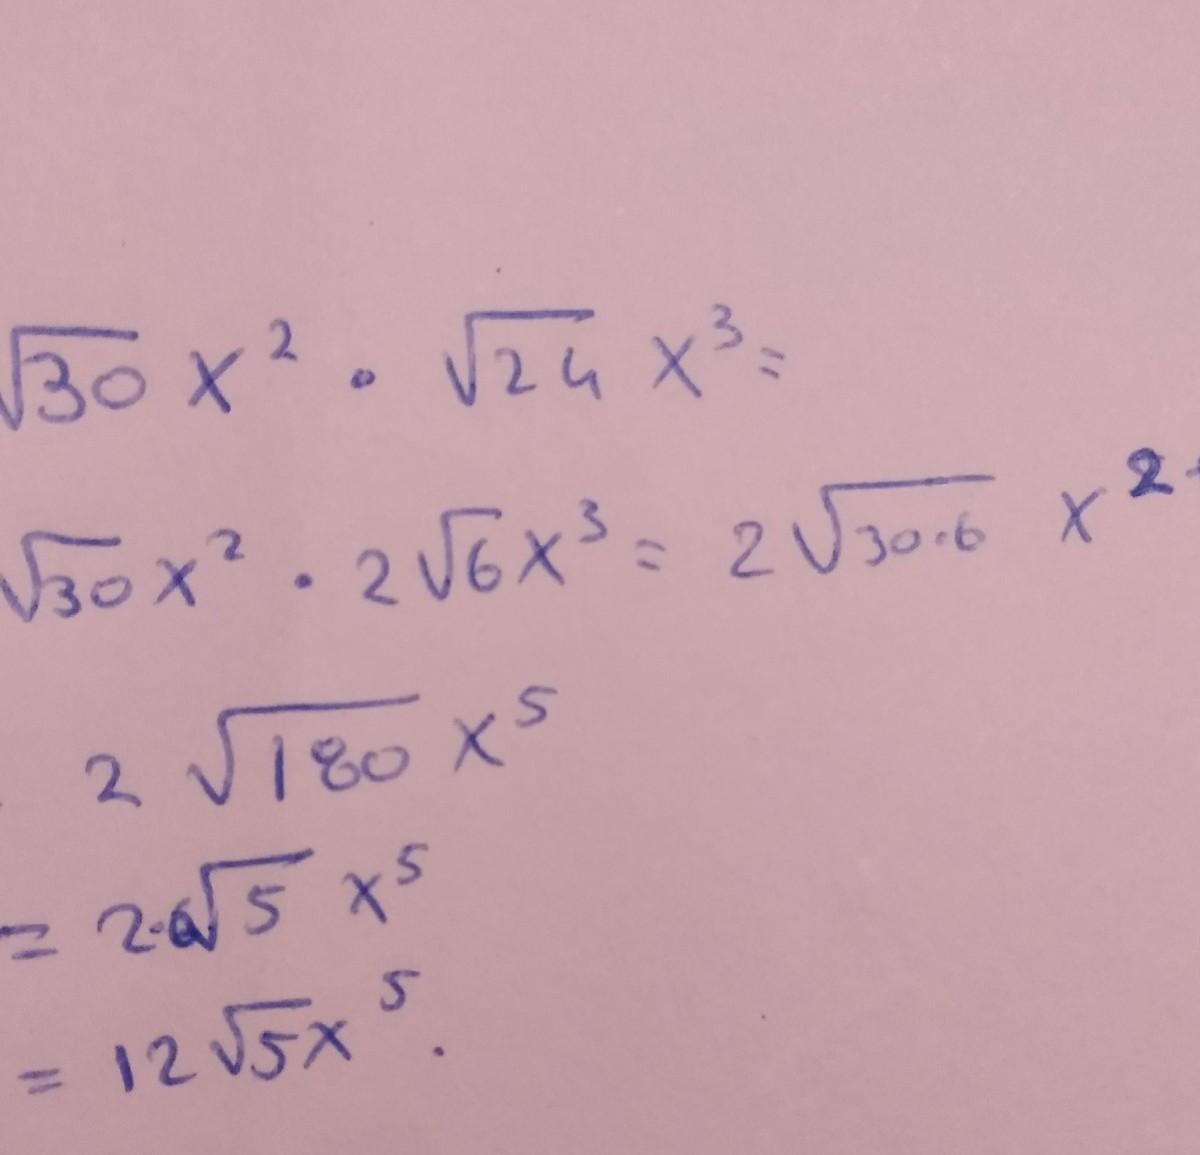 √30 x² · √24 x³ =
√30 x² · 2√6 x³ = 2√30·6 x²
2 √180 x⁵
= 2·6√5 x⁵
= 12√5 x⁵.